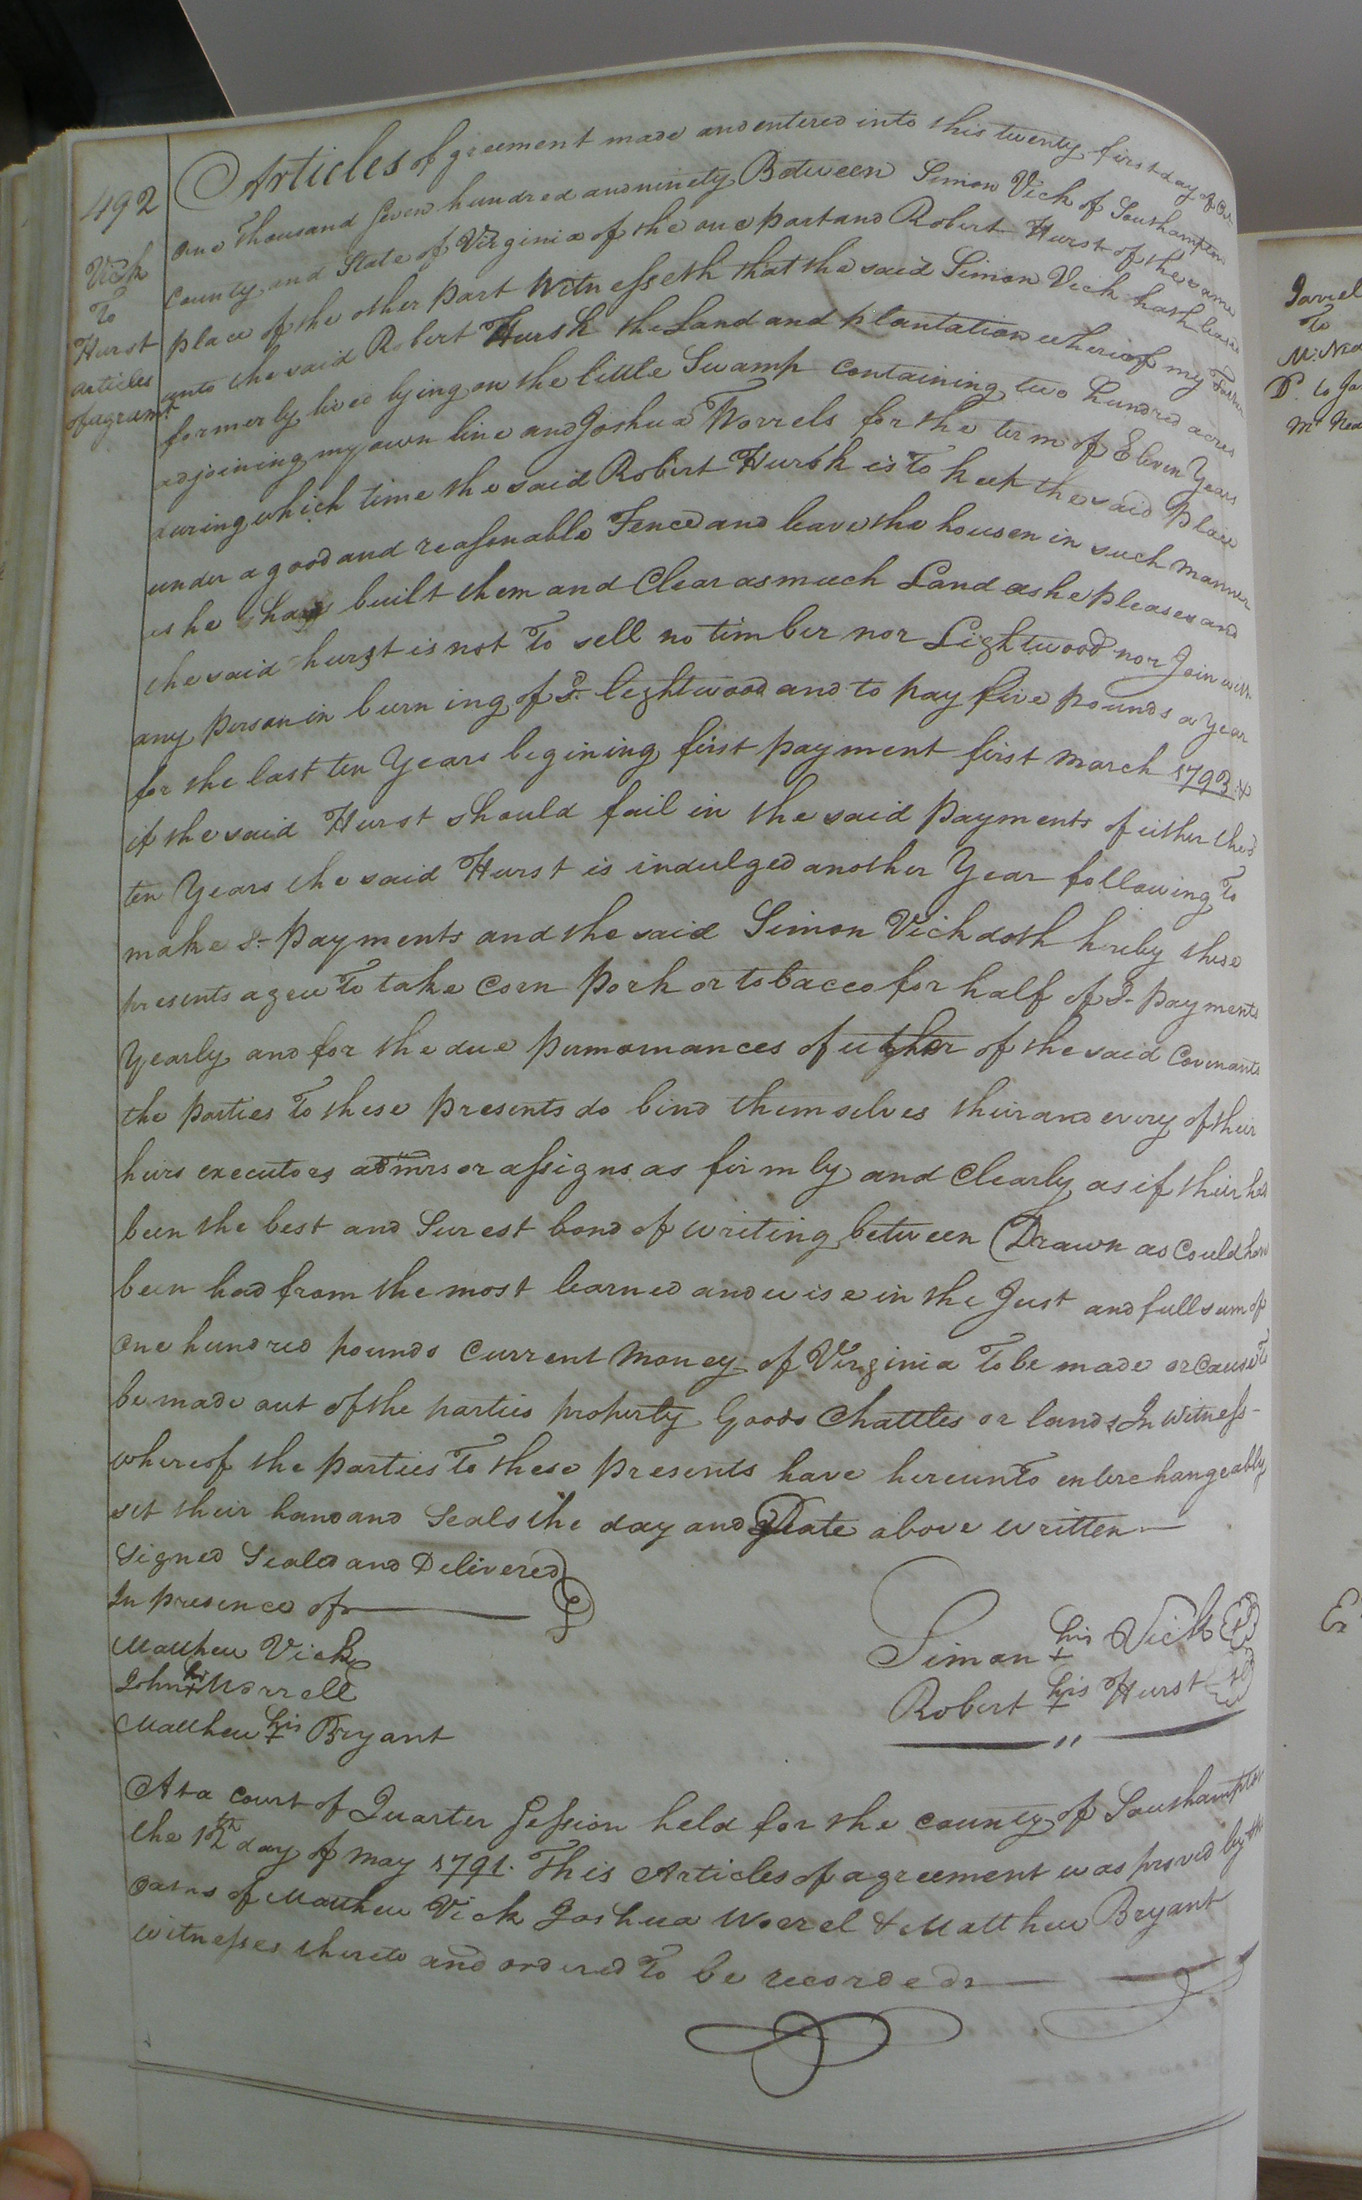 492
Vick
To
Hurst
articles
of agreemt
Articles of greement made and entered into this twenty first day of
One Thousand Seven hundred and ninety Between Simon Vick of Southampton
County and State of Virginia of the one part and Robert Hurst of the same
place of the other part Witnesseth that the said Simon Vick hath leased
unto the said Robert Hursk the Land and plantation whereof my Father
formerly lived lying on the little Swamp containing two hundred acres
adjoining my own line and Joshua Worrels for the term of Eleven Years
during which time the said Robert Hursk is To keep the said place
under a good and reasonable Fence and leave the housen in such manner
as he has built them and Clear as much Land as he pleases and
the said hurst is not To sell no timber nor Lightwood nor Join with
any person in burning of sd. lightwood and to pay five pounds a year
for the last ten Years begining first payment first march 1793 &
if the said Hurst should fail in the said payments of either the
ten Years the said Hurst is indulged another Year following To
make sd. payments and the said Simon Vick doth hereby these
presents agree To take corn pork or tobacco for half of sd. payments
Yearly and for the due permormances of either of the said Covenants
the parties To these presents do bind themselves their and every of their
heirs executors admrs or assigns as firmly and Clearly as if their had
been the best and Surest bond of writing between Drawn as Could have
been had from the most learned and wise in the Just and full sum of
One hundred pounds Current Money of Virginia To be made or Cause To
be made out of the parties property Goods Chattles or lands In Witness
whereof the parties To these presents have hereunto enterchangeably
set their hand and Seals the day and Date above written
Signed Sealed and Delivered
In presence of
Matthew Vick
John his + Worrell
Matthew his + Bryant
Simon his + Vick
Robert his + Hurst
At a Court of Quarter Session held for the county of Southampton
the 12th day of may 1791. This Articles of agreement was proved by the
oaths of Matthew Vick Joshua Worrel & Matthew Bryant
witnesses thereto and ordered To be recorded
Jarrel
To